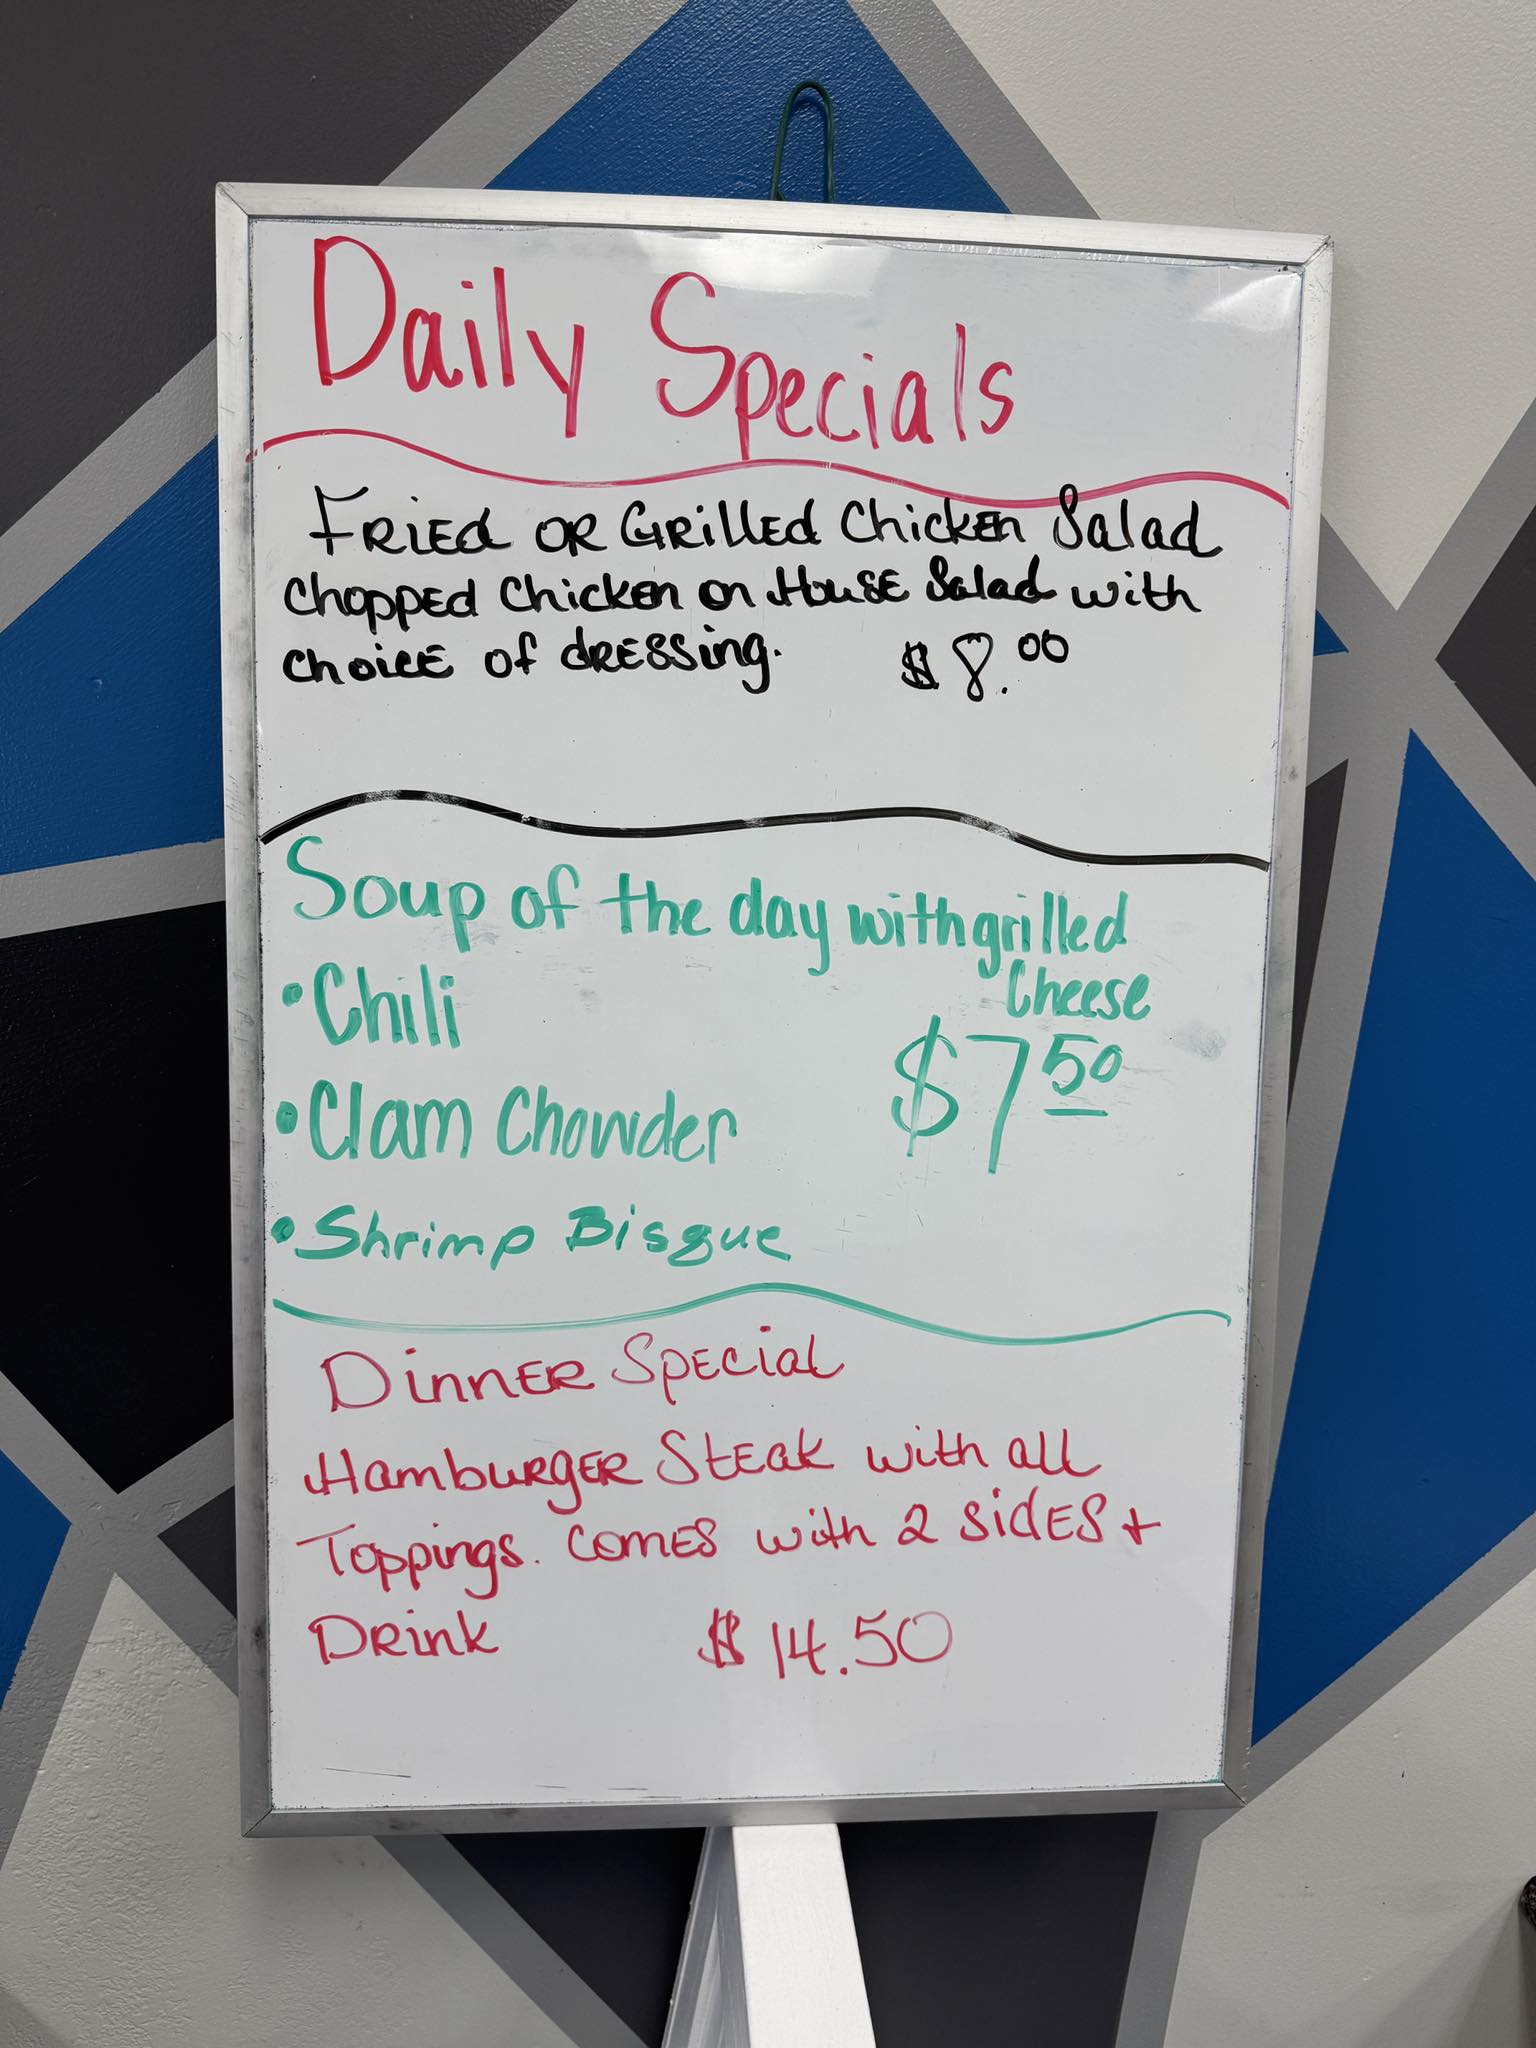 Daily Specials
Fried or Grilled Chicken Salad
chopped chicken on House Salad with
choice of dressing. $8.00
Soup of the day with grilled
Cheese
• Chili
$7.50
• Clam Chowder
• Shrimp Bisque
Dinner Special
Hamburger Steak with all
Toppings. comes with 2 sides +
Drink $14.50